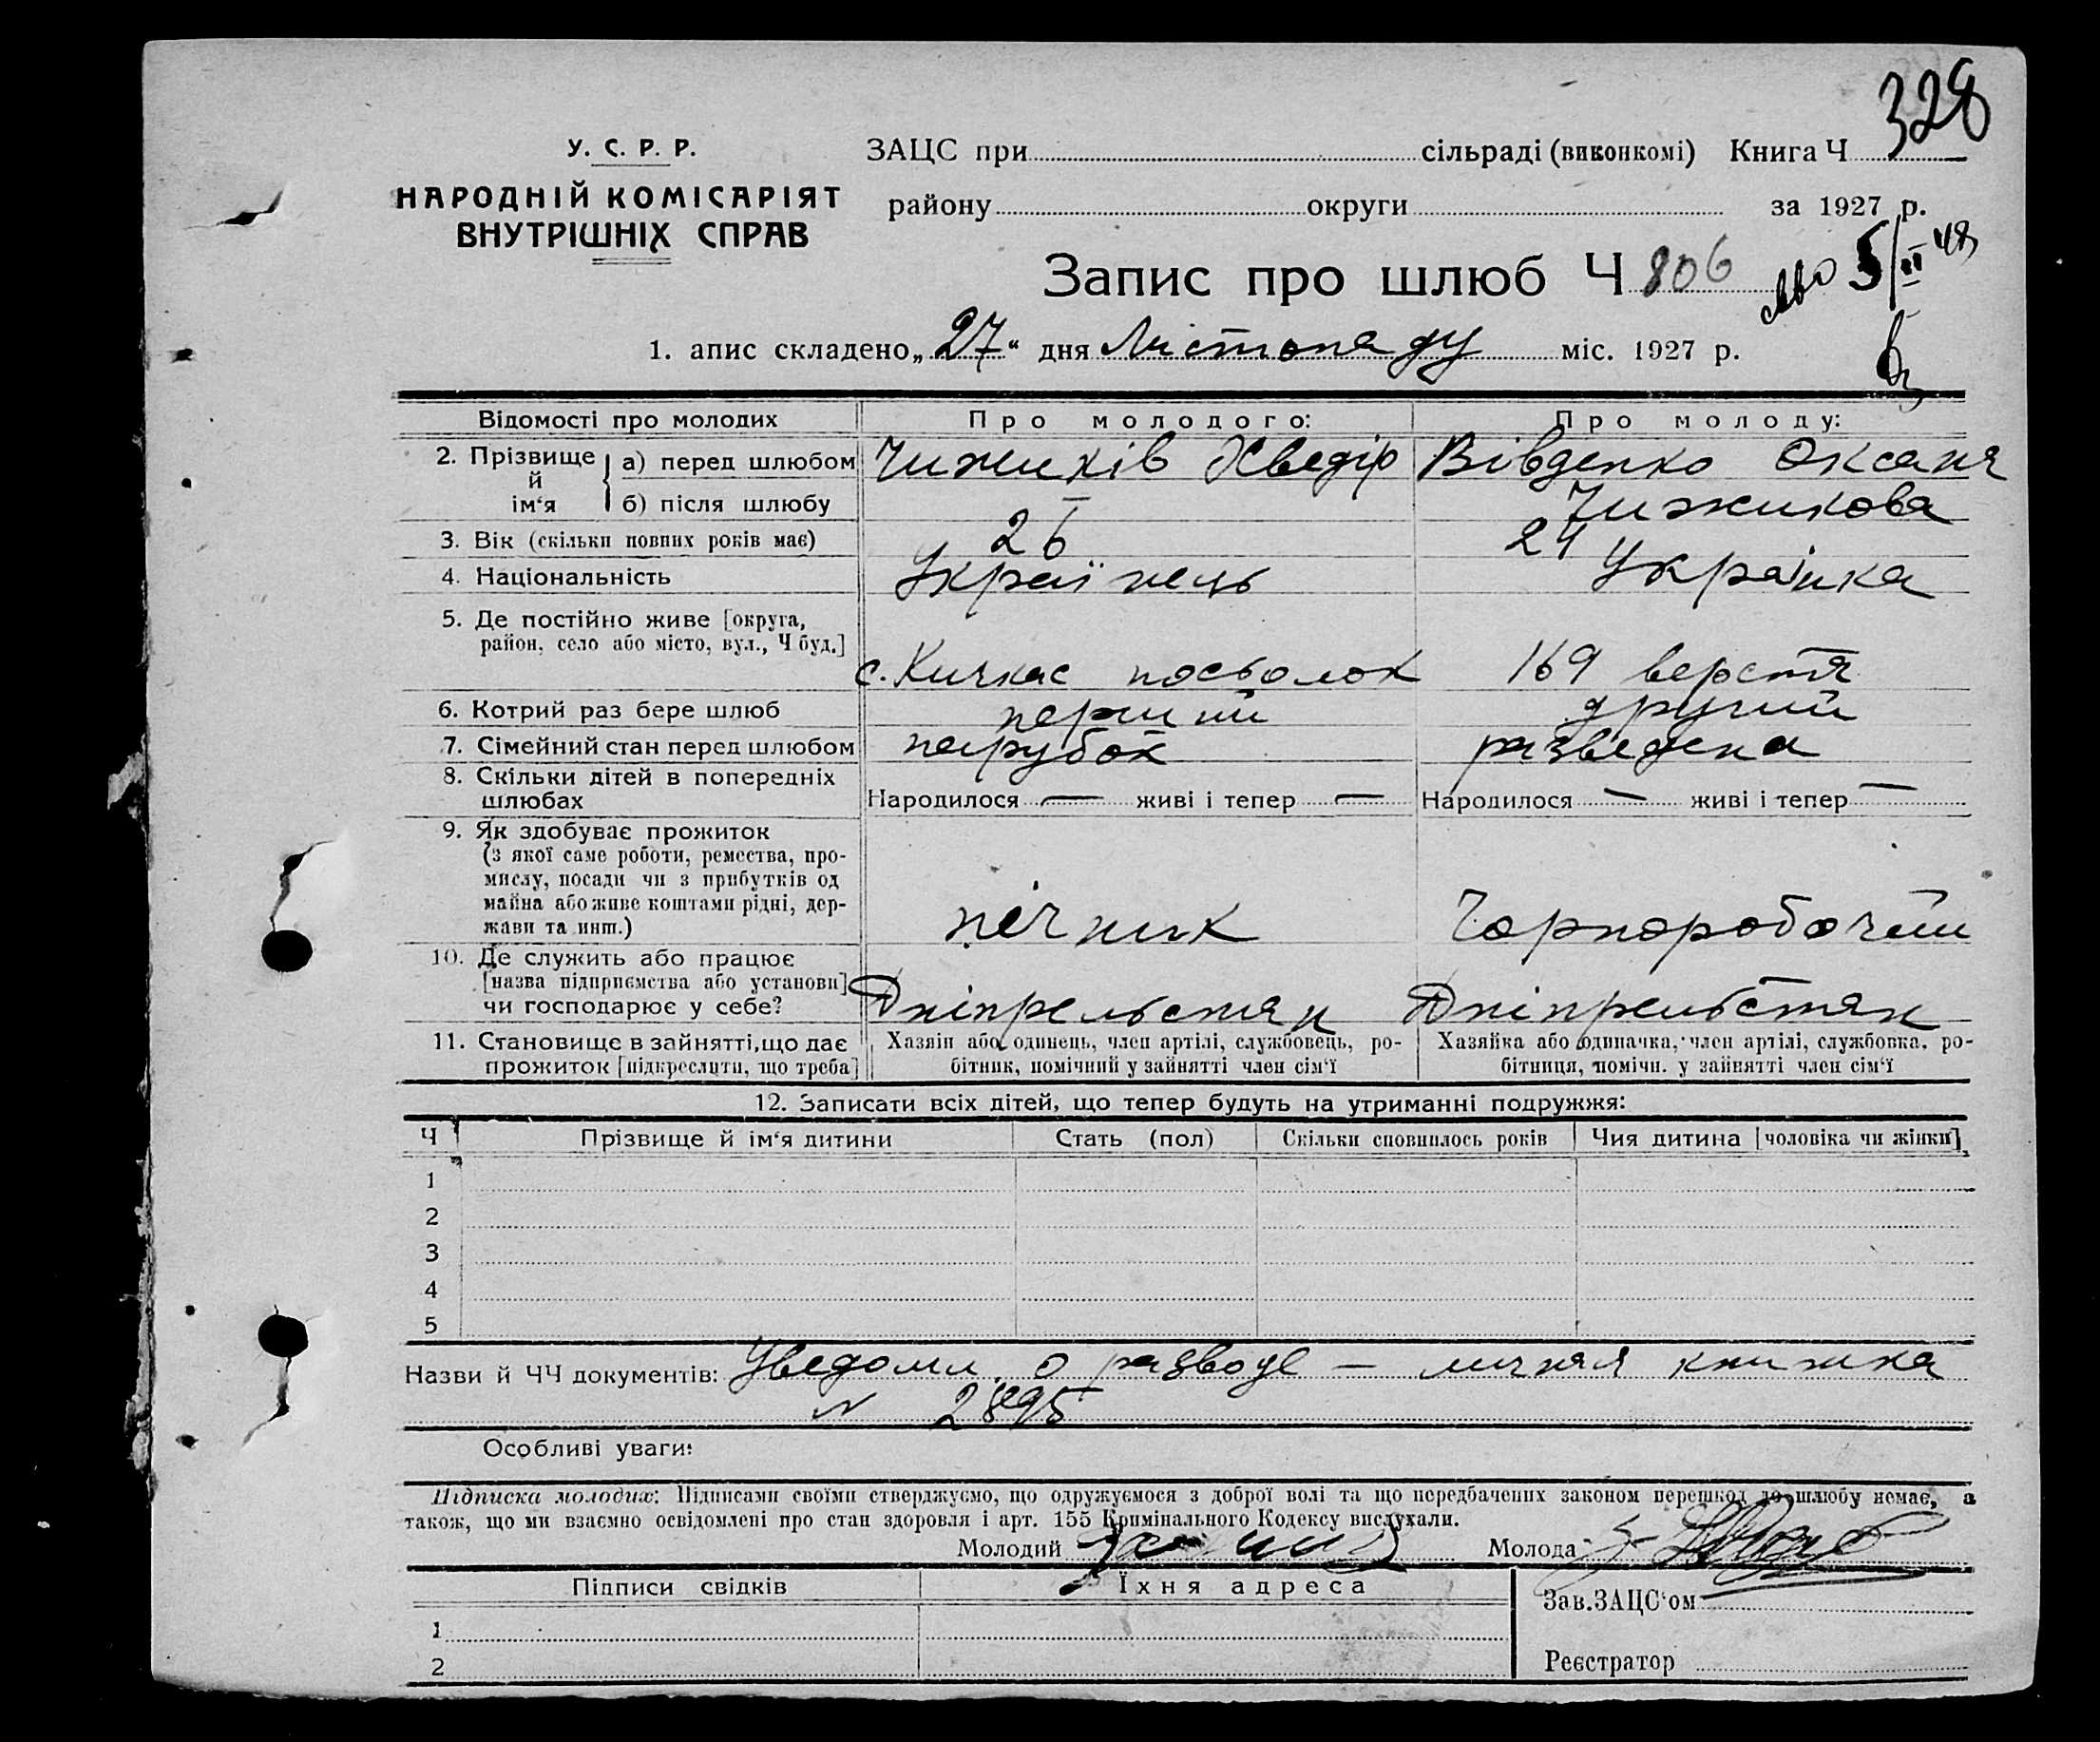 328
У. С. Р. Р.
НАРОДНІЙ КОМІСАРІЯТ
ВНУТРІШНІХ СПРАВ
ЗАЦС при сільраді (виконкомі) Книга Ч
району округи за 1927 р.
Запис про шлюб Ч 806
5/II 48
1. апис складено „27“ дня Листопаду міс. 1927 р.
Відомості про молодих Про молодого: Про молоду:
2. Прізвище й ім‘я а) перед шлюбом Чижиків Хведір Вівденко Оксана
б) після шлюбу — Чижикова
3. Вік (скільки повних років має) 26 24
4. Національність Українець Українка
5. Де постійно живе [округа,
район, село або місто, вул., Ч буд.]
с. Кичкас посьолок 169 верста
6. Котрий раз бере шлюб перший другий
7. Сімейний стан перед шлюбом парубок разведена
8. Скільки дітей в попередніх
шлюбах Народилося — живі і тепер — Народилося — живі і тепер —
9. Як здобуває прожиток
(з якої саме роботи, ремества, про-
мислу, посади чи з прибутків од
майна або живе коштами рідні, дер-
жави та инш.) пічник Чорноробочий
10. Де служить або працює
[назва підприємства або установи]
чи господарює у себе? Дніпрельстан Дніпрельстан
11. Становище в зайнятті, що дає Хазяін або одинець, член артілі, службовець, ро- Хазяйка або одиначка, член артілі, службовка, ро-
прожиток [підкреслити, що треба] бітник, помічний у зайнятті член сім‘ї бітниця, помічн. у зайнятті член сім‘ї
12. Записати всіх дітей, що тепер будуть на утриманні подружжя:
Ч Прізвище й ім‘я дитини Стать (пол) Скільки сповнилось років Чия дитина [чоловіка чи жінки]
1
2
3
4
5
Назви й ЧЧ документів: Уведомл. о разводе — личная книжка
N 2895
Особливі уваги:
Підписка молодих: Підписами своїми стверджуємо, що одружуємося з доброї волі та що передбачених законом перешкод до шлюбу немає, а
також, що ми взаємно освідомлені про стан здоровля і арт. 155 Кримінального Кодексу вислухали.
Молодий Молода
Підписи свідків Їхня адреса
Зав. ЗАЦС‘ом
1
Реєстратор
2